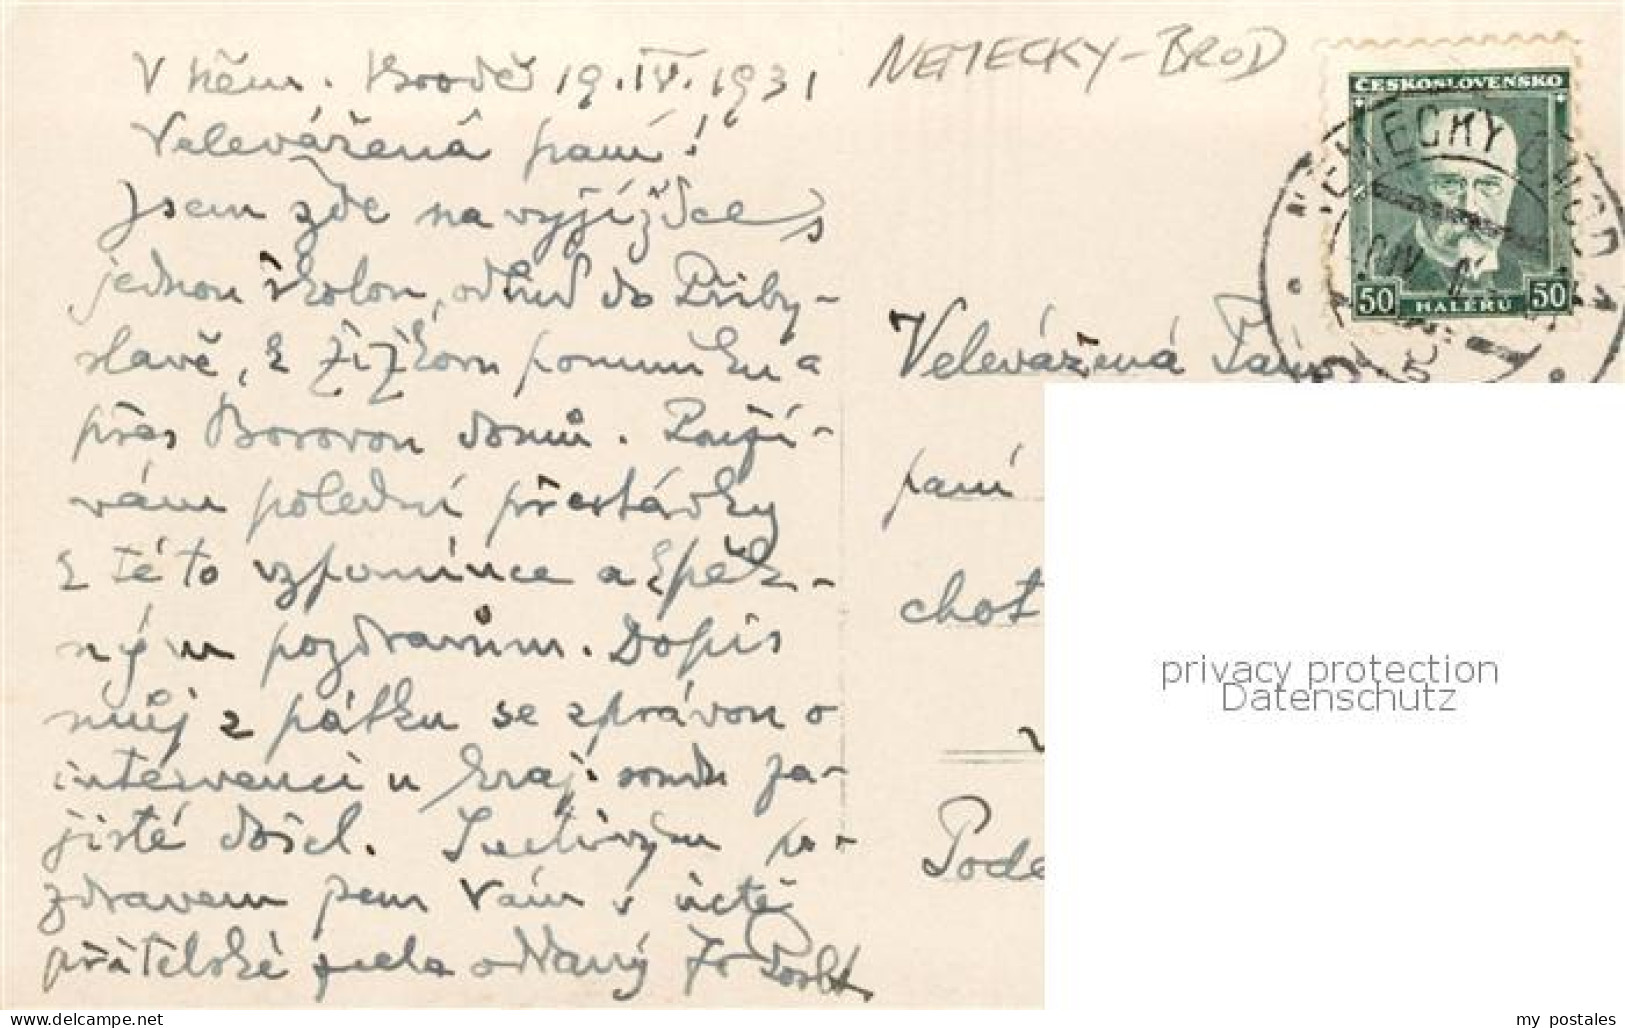 NEMECKY-BROD
V Něm. Brodě 19.IV.1931
Velevážená paní!
Jsem zde na vyjížďce s
jednou školou, odtud do Přiby-
slavě, k Žižkovu pomníku a
přes Borovou domů. Použí-
vám polední přestávky
k této vzpomínce a zpěč-
ným pozdravům. Dopis
můj z pátku se zprávou o
intervenci u kraj. soudu za-
jisté došel. Srdečným po-
zdravem jsem Vám v úctě
přátelské zcela oddaný
ČESKOSLOVENSKO
50 HALÉRŮ 50
NĚMECKÝ BROD
Velevážená Paní
paní
choť
Pode
privacy protection
Datenschutz
www.delcampe.net
my_postales